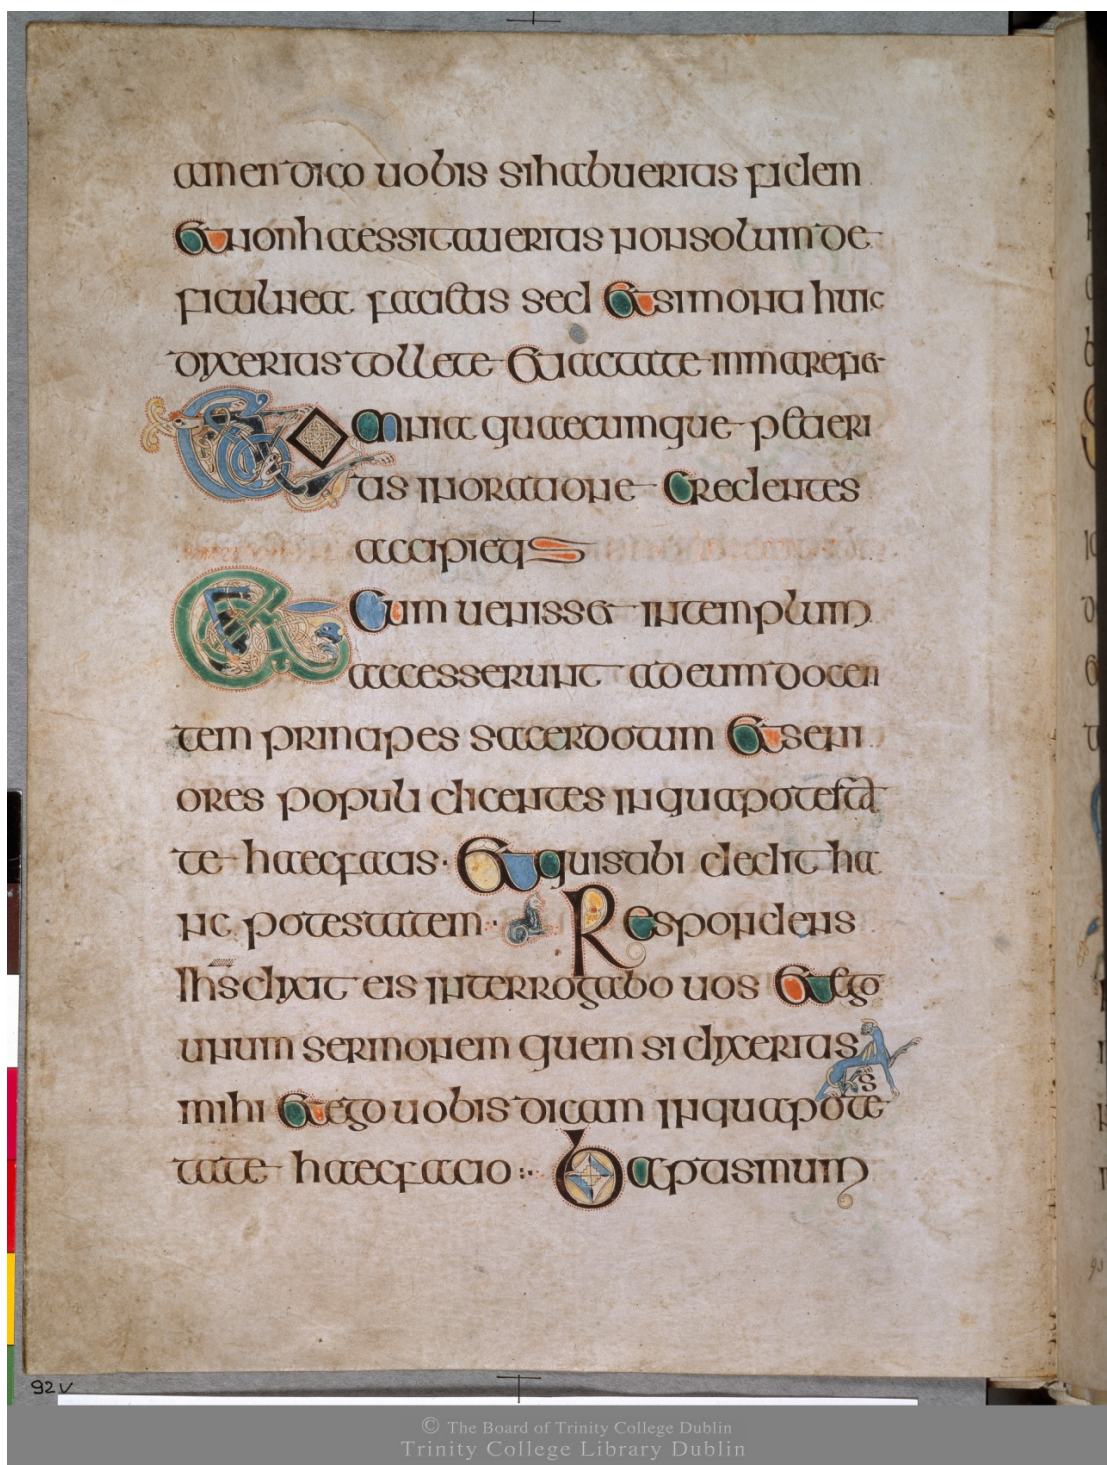 amen dico uobis si habueritis fidem
Et non haessitaueritis non solum de
ficulnea facietis sed Et si monti huic
dixeritis tollete Et iactate in mare fiet
Et omnia quaecumque petieri
tis in oratione Credentes
accipietis
Et Cum uenisset in templum
accesserunt ad eum docen
tem principes sacerdotum Et seni
ores populi dicentes in qua potesta
te haec facis · Et quis tibi dedit ha
nc potestatem · Respondens
ihs dixit eis interrogabo uos Et ego
unum sermonem quem si dixeritis
s
mihi Et ego uobis dicam in qua pote
tate haec facio :· Baptismum
92v
© The Board of Trinity College Dublin
Trinity College Library Dublin